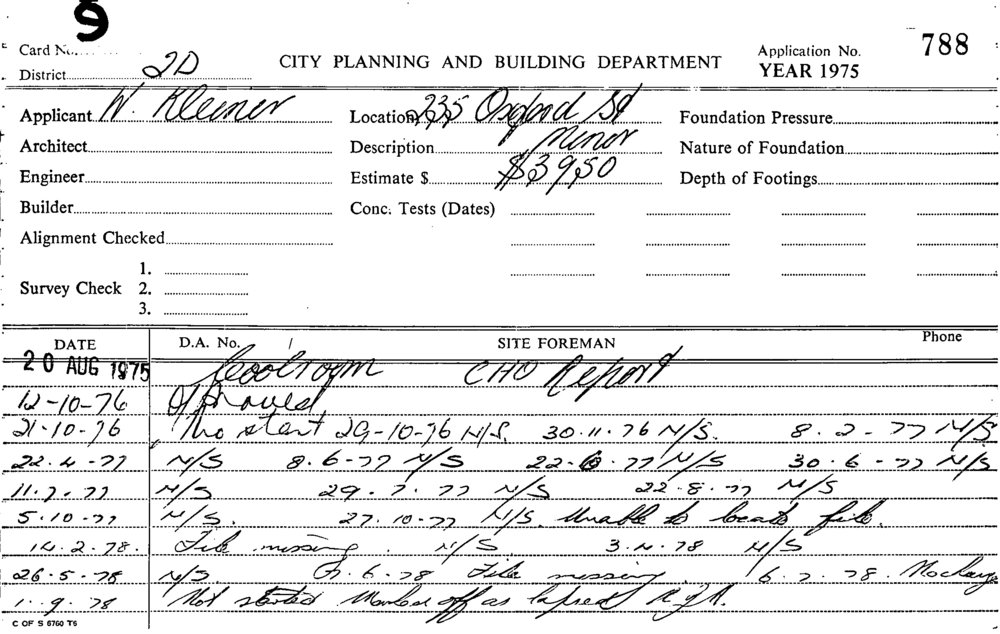 9
Card No.
Application No. 788
District 2D CITY PLANNING AND BUILDING DEPARTMENT YEAR 1975
Applicant W. Kleiner Location 235 Oxford St Foundation Pressure
Architect Description Minor Nature of Foundation
Engineer Estimate $ $3950 Depth of Footings
Builder Conc. Tests (Dates)
Alignment Checked
1.
Survey Check 2.
3.
DATE D.A. No. / SITE FOREMAN Phone
20 AUG 1975 Coolroom CHO Report
12-10-76 Approved
21-10-76 No start 29-10-76 N/S. 30.11.76 N/S. 8.2-77 N/S
22.4-77 N/S 8.6-77 N/S 22.6.77 N/S 30.6-77 N/S
11.7.77 N/S 29.7.77 N/S 22.8.77 N/S
5.10-77 N/S. 27.10-77 N/S. Unable to locate file.
14.2.78. File missing. N/S 3.4.78 N/S
26.5.78 N/S. 6.78 File missing. 6.7.78. No change
1.9.78 Not started Marked off as lapsed
C OF S 6760 T6